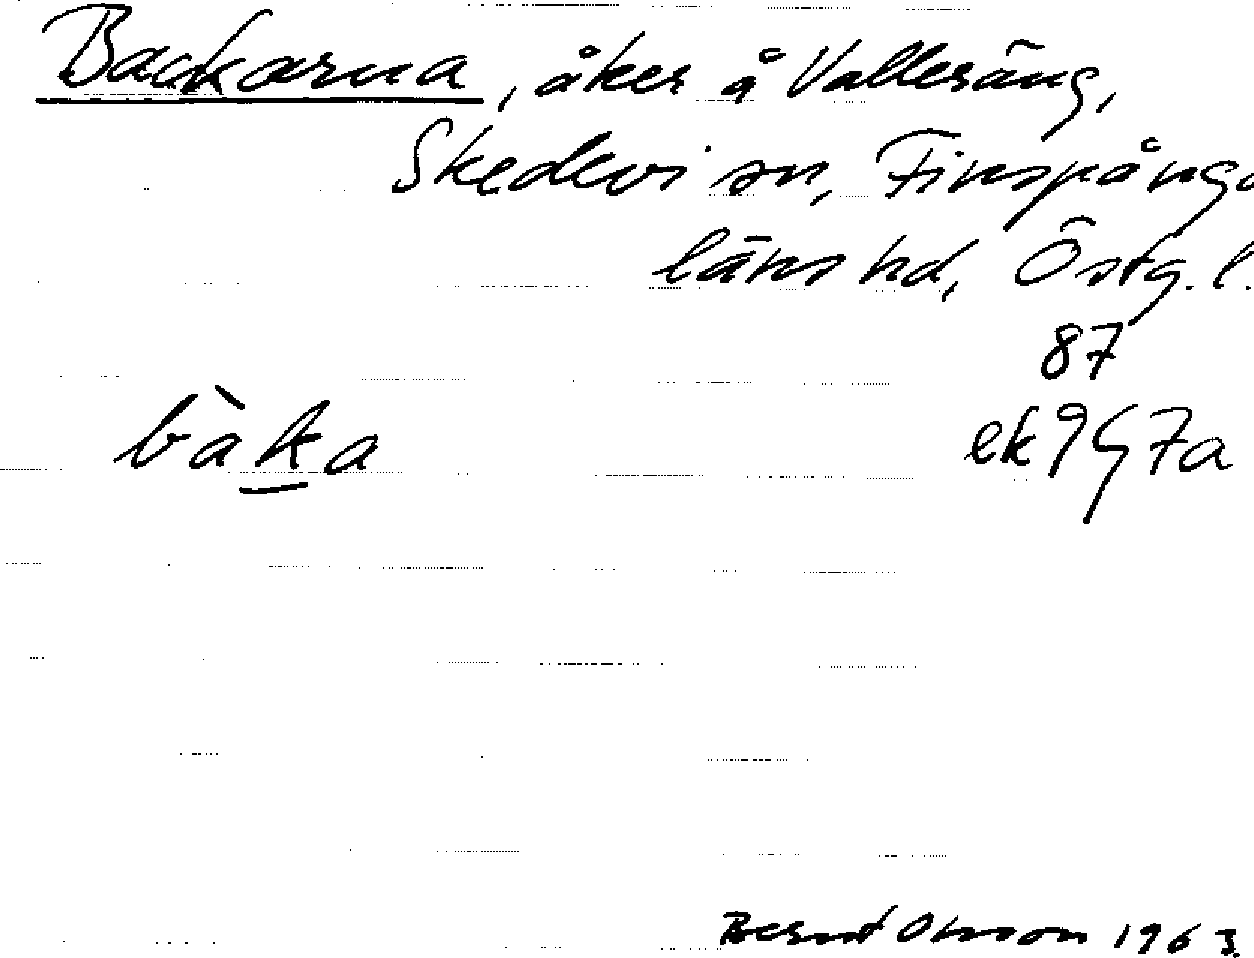 Backarna, åker å Valleräng,
Skedevi sn, Finspånga
läns hd, Östg. l.
87
bàka ek 9G7a
Bernt Olsson 1963